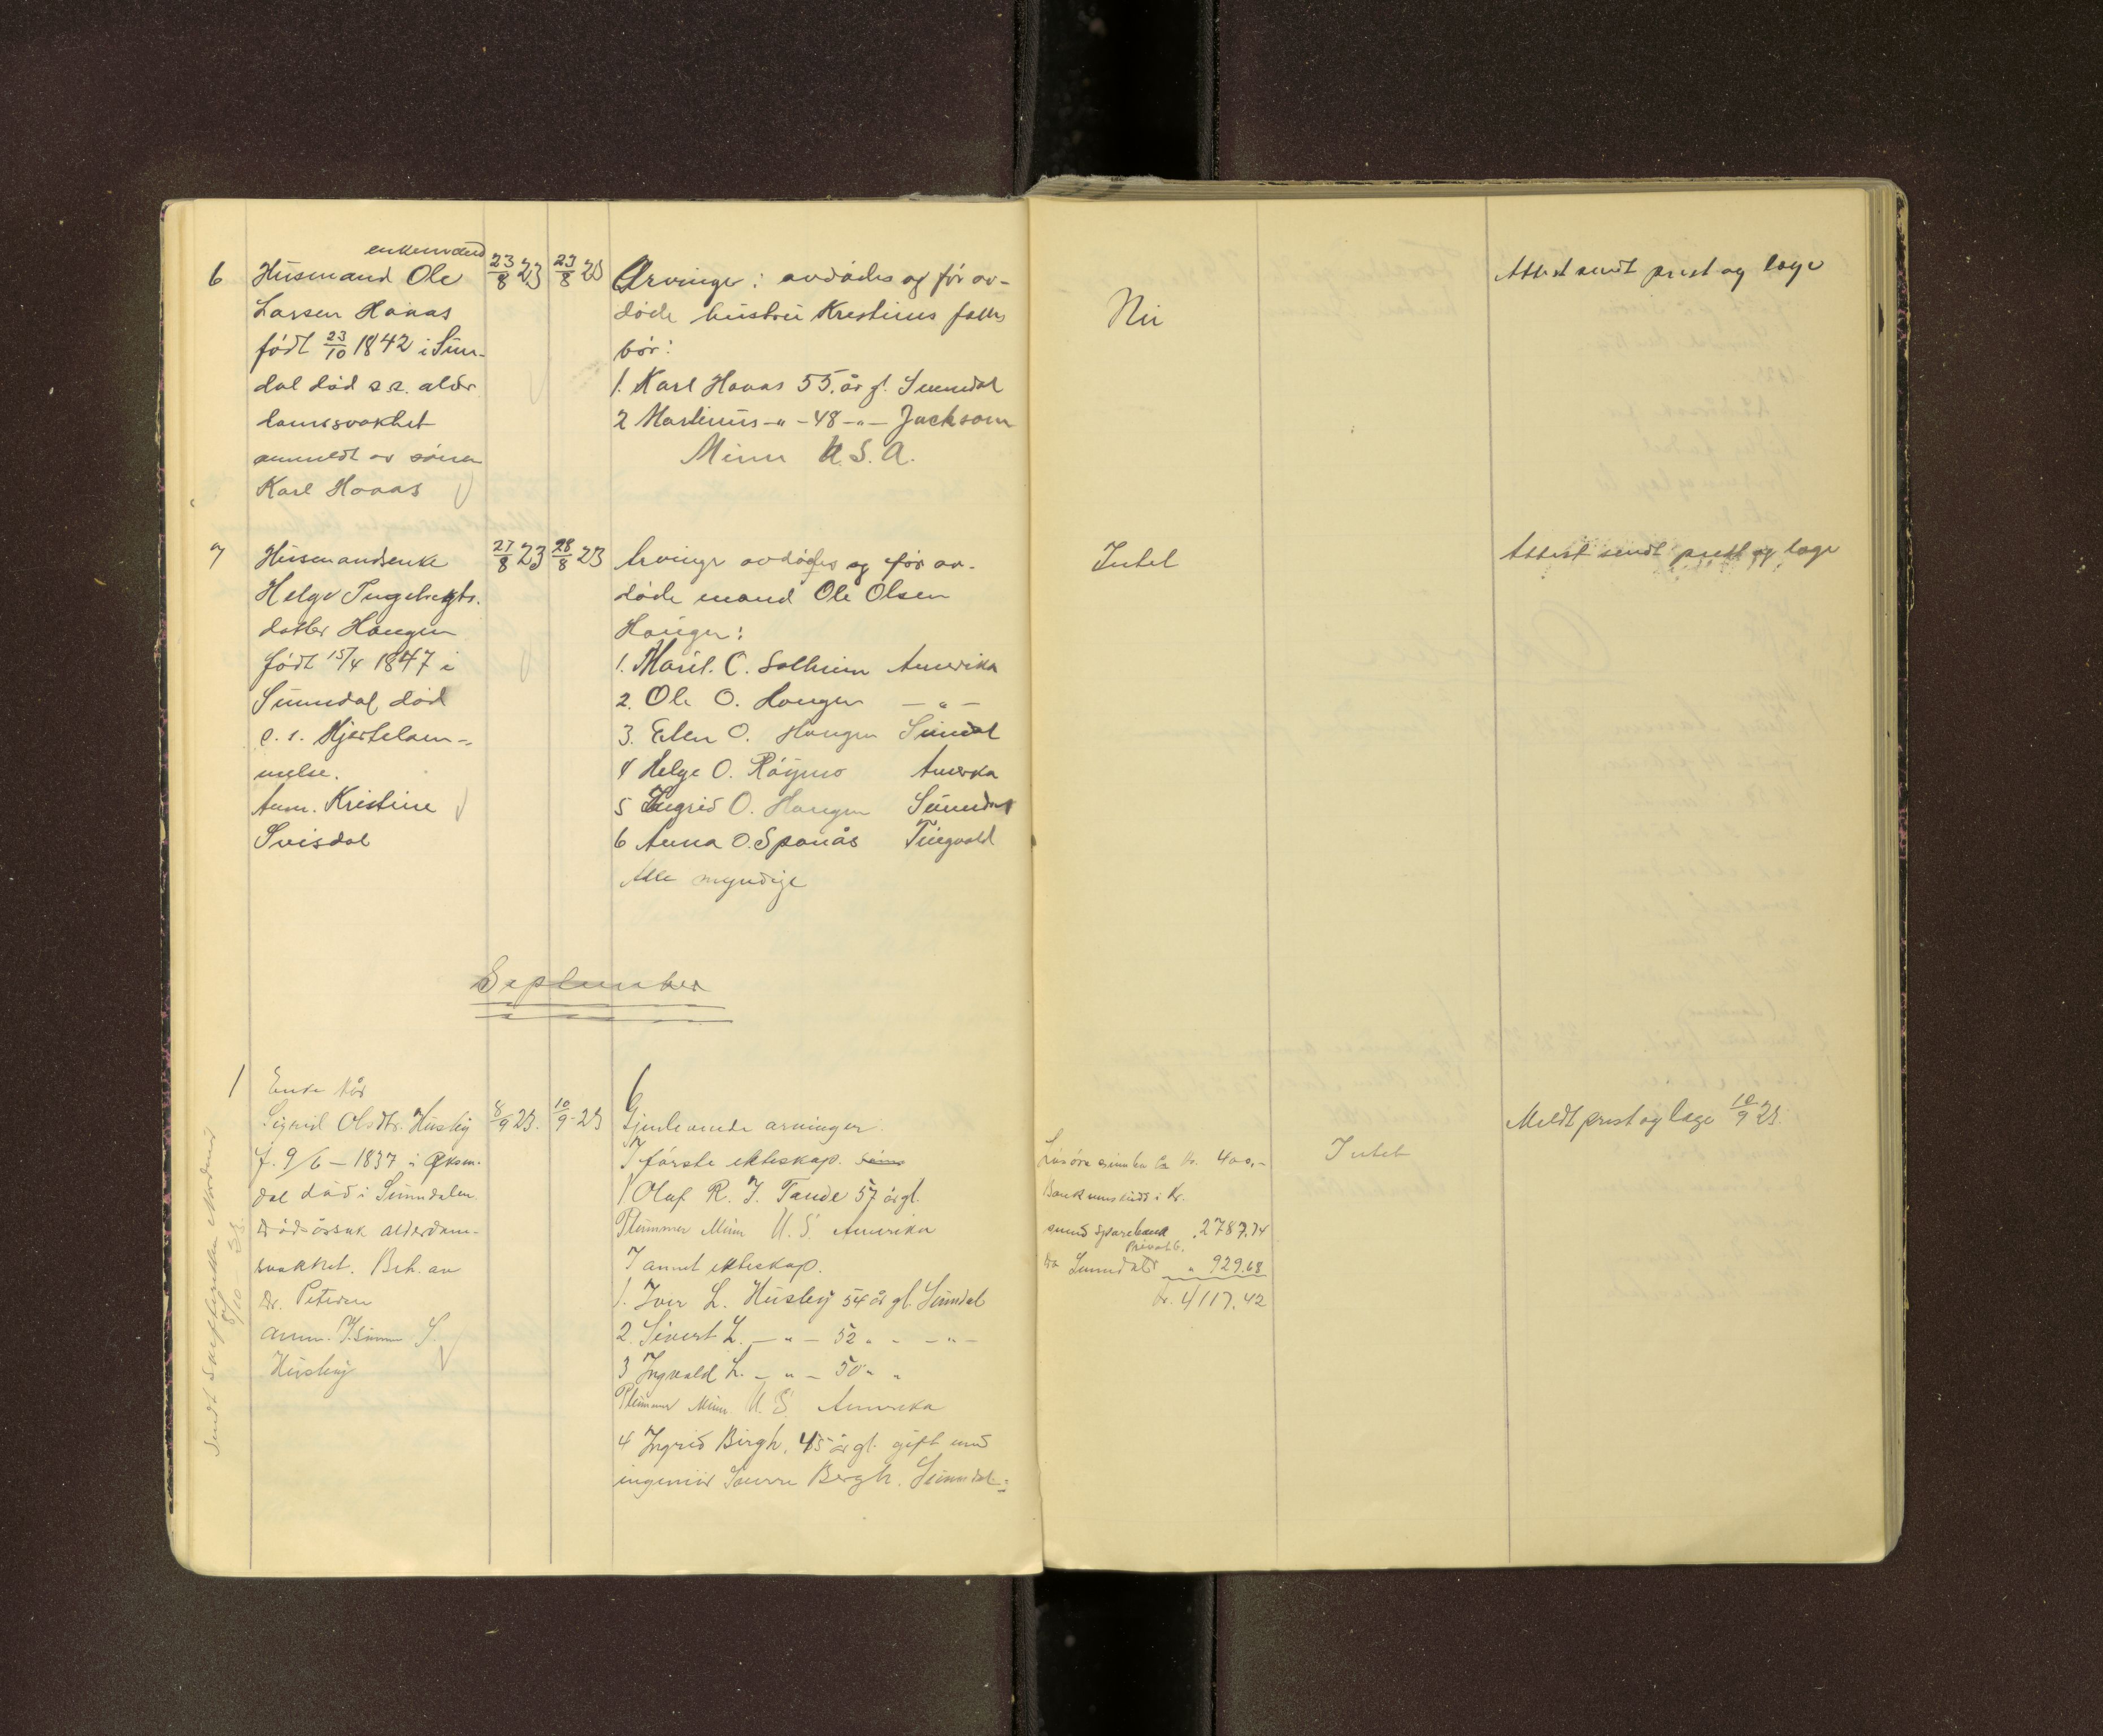 enkemand
6 Husmand Ole
Larsen Haaas
født 23/10 1842 i Sun-
dal død s.s. alder
domssvakhet
anmeldt av sønn
Karl Hoaas
23/8 23
23/8 23
Arvinger: avdødes og før av-
døde hustru Kristines felles
bør:
1. Karl Hoaas 55. år gl. Sunndal
2 Martinus -"- 48 -"- Jackson
Minn U.S.A.
Nei
Attest sendt prest og lege
7 Husmandsenke
Helge Ingebrigts.
datter Haugen
født 15/4 1847 i
Sunndal, død
s.s. Hjertelam-
melse.
Anm. Kristine
Svisdal
27/8 23
28/8 23
Arvinger avdødes og før av-
døde mand Ole Olsen
Haugen:
1. Marit. C. Solheim Amerika
2. Ole O. Haugen -"-
3. Elen O. Haugen Sunndal
4 Helge O. Røymo Amerika
5 Ingrid O. Haugen Sunndal
6 Anna O. Spanås Tingvold
Alle myndige
Intet
Attest sendt prest og lege
September
1 Enke kår
Sigrid Olsdtr. Husby
f. 9/6 - 1837 i Øksen-
dal død i Sunndalen.
Dødsårsak alderdom-
svakhet. Beh. av
Dr. Petersen
anm. S.
Husby
8/9 23.
10/9 - 23
6
Gjenlevende arvinger.
I første ekteskap.
1 Oluf R. J. Tande 57 år gl.
Plummer Minn U. S. Amerika
I annet ekteskap.
1. Iver L. Husby 54 år gl. Sunndal
2. Sivert L. -"- 52 " - -"-
3 Ingvald L. -"- 50 " "
Plummer Minn. U. S. Amerika
4 Ingrid Bergh. 45 år gl. gift med
ingeniør Sverre Bergh. Sunndal:
Løsøre sinnbo ca kr. 400,-
Bankinnskudd i Kr.
sund Sparebank " 2787.74
Privatb.
Do Sunndals " 929.68
Kr. 4117.42
Intet
Meldt prest og lege 10/9 23.
Sendt Skifteretten Nordmøre
8/10 - 23.